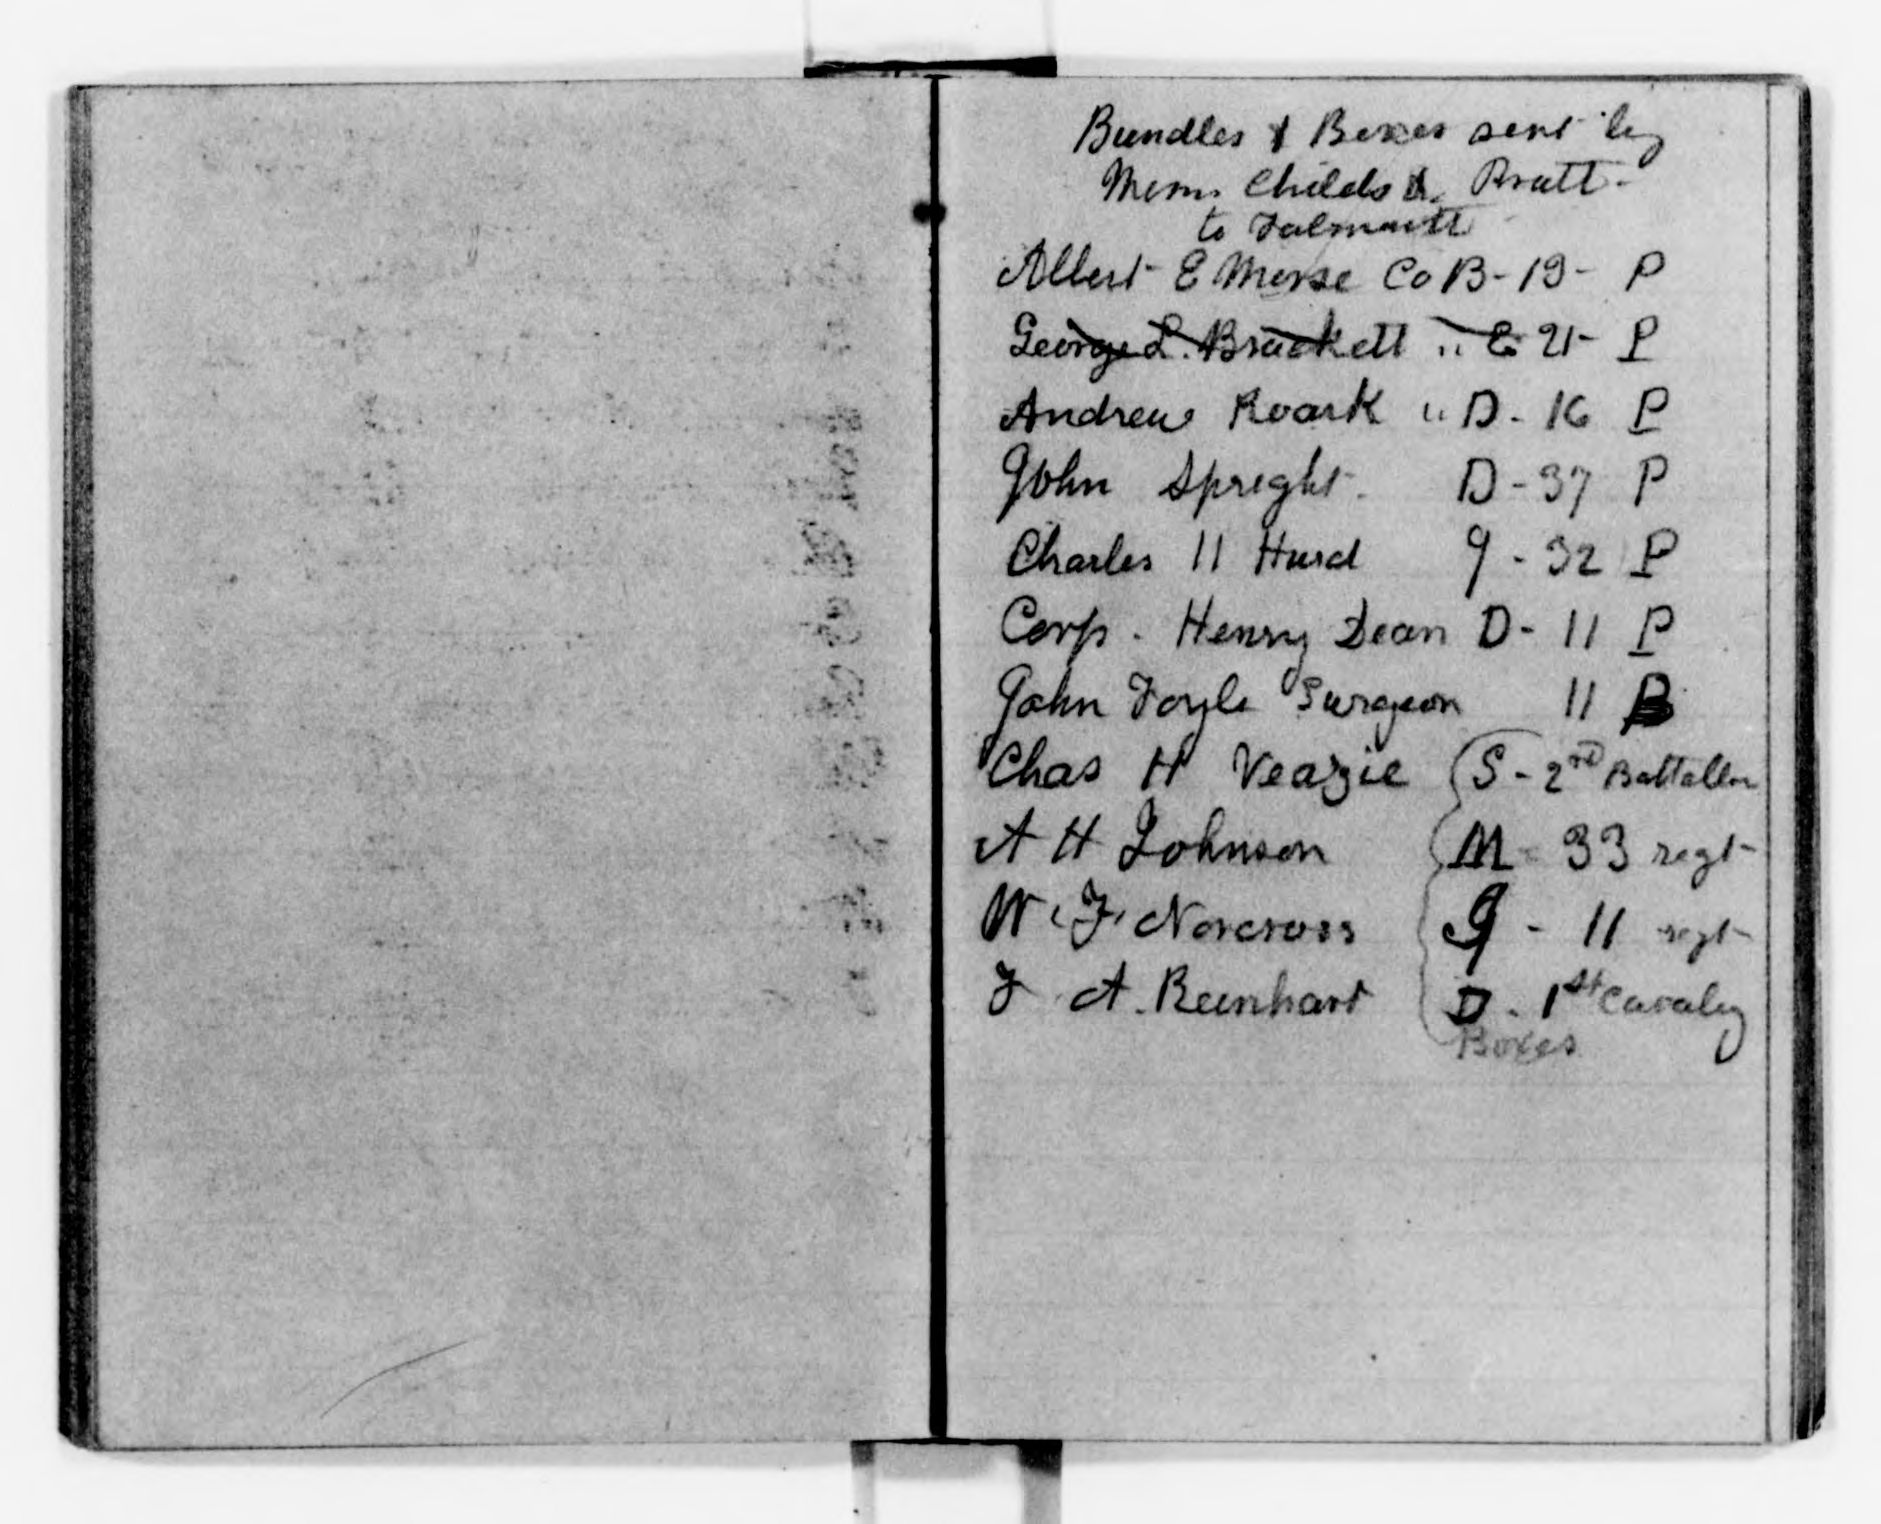 Bundles & Boxes sent by
Messrs Childs & Pratt -
to Falmouth
Albert E Morse Co B - 19 - P
George L. Brackett " E 21 - P
Andrew Roark " D - 16 P
John Spreght - D - 37 P
Charles H Hurd G - 32 P
Corp. Henry Dean D - 11 P
John Foyle Surgeon 11 B
Chas H Veazie S - 2nd Battallon
A H Johnson M - 33 regt -
W. F. Norcross G - 11 regt -
F A. Reinhart D - 1st Cavalry
Boxes